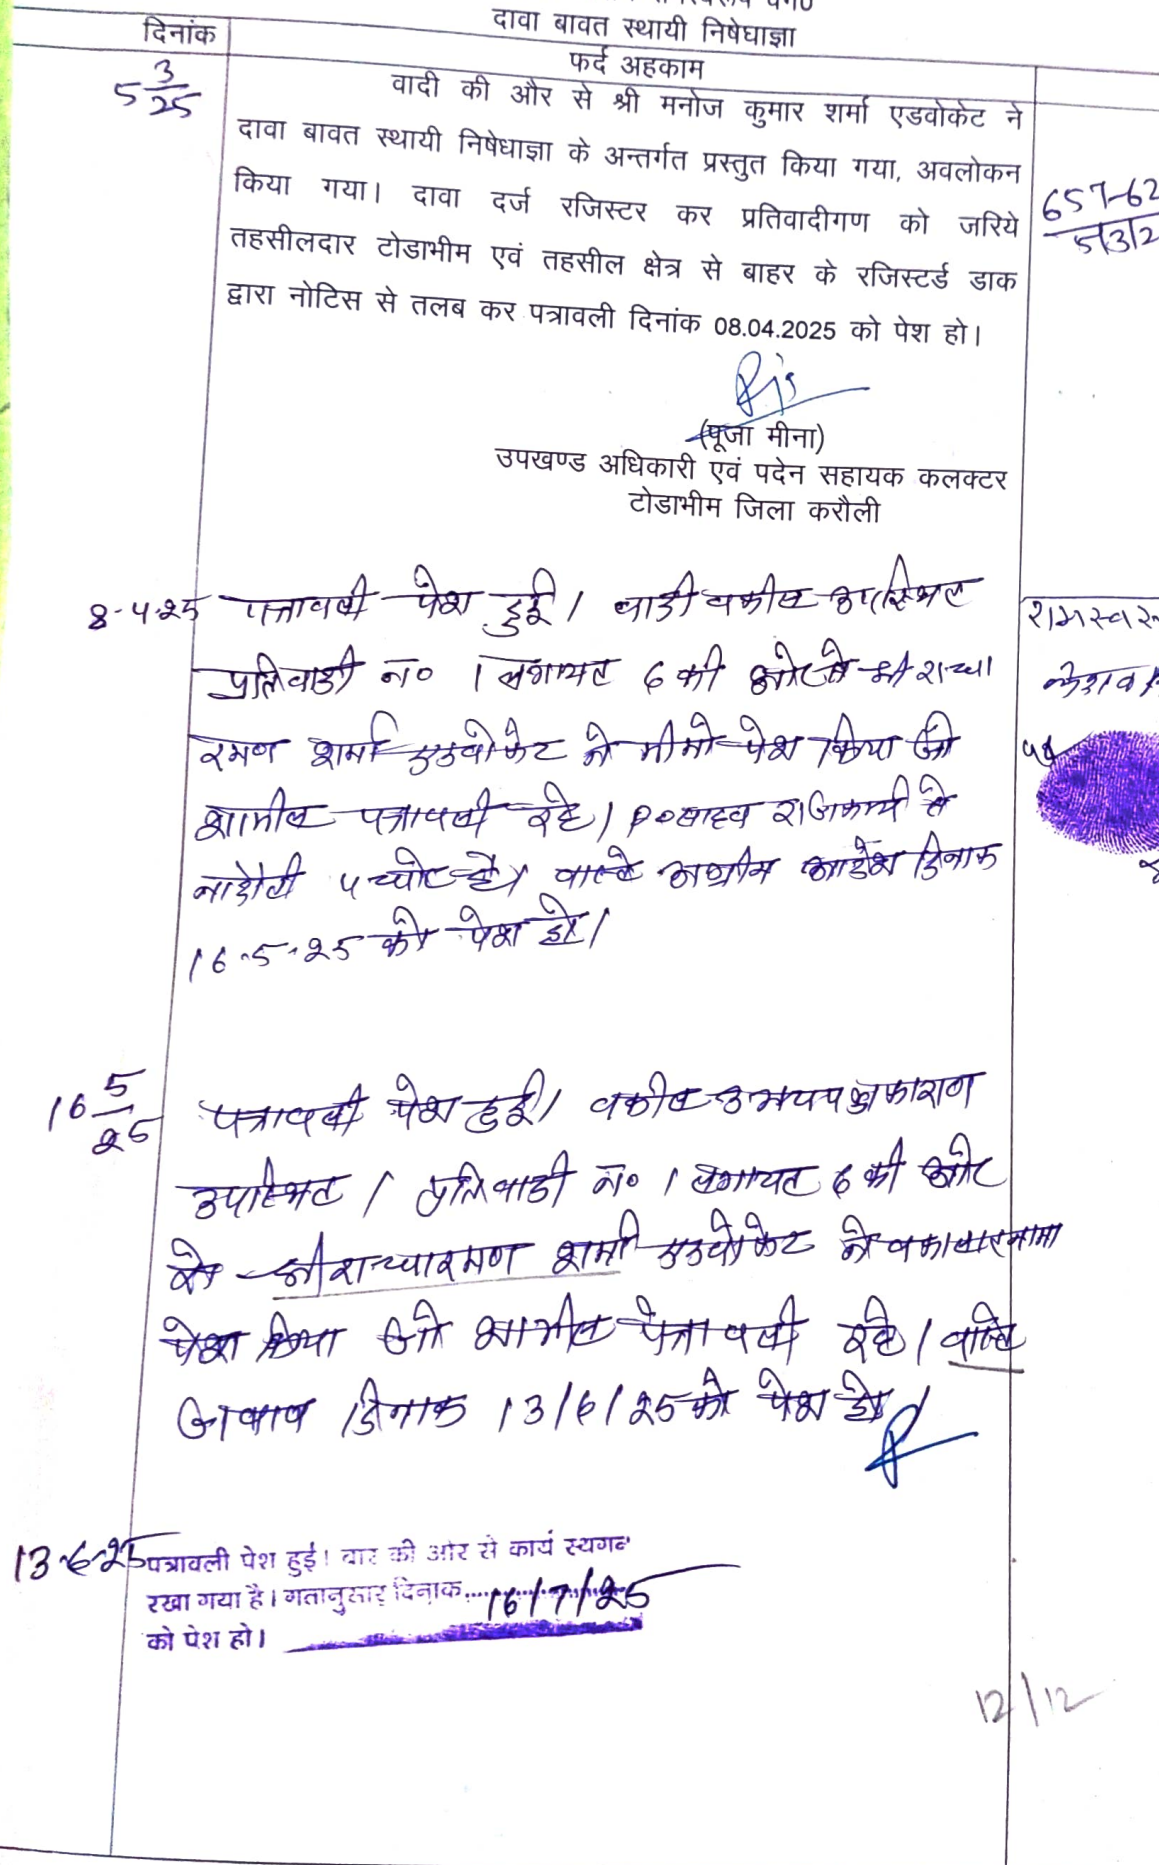 दावा बावत स्थायी निषेधाज्ञा
दिनांक
फर्द अहकाम
5 3/25
वादी की और से श्री मनोज कुमार शर्मा एडवोकेट ने
दावा बावत स्थायी निषेधाज्ञा के अन्तर्गत प्रस्तुत किया गया, अवलोकन
किया गया। दावा दर्ज रजिस्टर कर प्रतिवादीगण को जरिये
तहसीलदार टोडाभीम एवं तहसील क्षेत्र से बाहर के रजिस्टर्ड डाक
द्वारा नोटिस से तलब कर पत्रावली दिनांक 08.04.2025 को पेश हो।
657-62
5/3/2
(पूजा मीना)
उपखण्ड अधिकारी एवं पदेन सहायक कलक्टर
टोडाभीम जिला करौली
8-4-25 पत्रावली पेश हुई। वादी वकील उपस्थित
प्रतिवादी न० 1 लगायत 6 की ओर से श्री राधा
रमण शर्मा एडवोकेट ने मीमो पेश किया जो
शामील पत्रावली रहे। P०साहब राजकार्य से
वास्ते अग्रीम आदेश दिनाक
16-5-25 को पेश हो।
रामस्वरू
16 5/25
पत्रावली पेश हुई। वकील उभयपक्षकारान
उपस्थित। प्रतिवादी न० 1 लगायत 6 की ओर
से श्री राधारमण शर्मा एडवोकेट ने वकालतनामा
पेश किया जो शामील पत्रावली रहे। वास्ते
जवाब दिनाक 13/6/25 को पेश हो।
13-6-25 पत्रावली पेश हुई। बार की ओर से कार्य स्थगन
रखा गया है। गतानुसार दिनाक 16/7/25
को पेश हो।
12/12